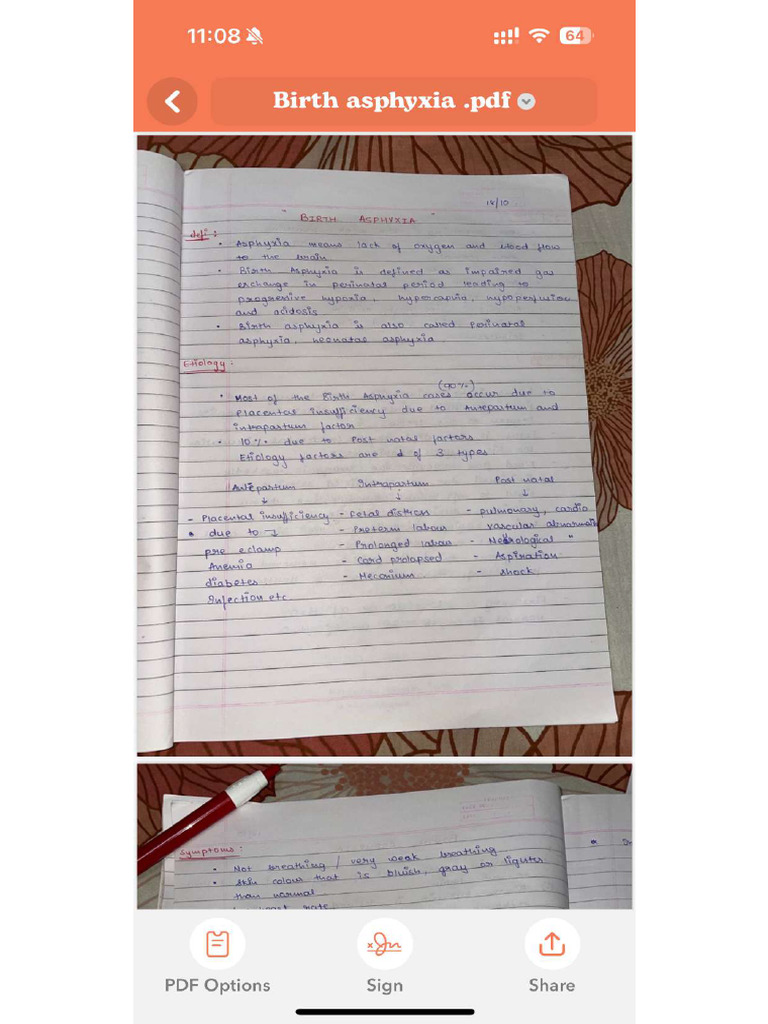 11:08
64
Birth asphyxia .pdf
18/10.
" BIRTH ASPHYXIA "
defi :
• Asphyxia means lack of oxygen and blood flow
to the brain
• Birth Asphyxia is defined as impaired gas
exchange in perinatal period leading to
progressive hypoxia, hypercapnia, hypoperfusion
and acidosis
• Birth asphyxia is also called Perinatal
asphyxia, neonatal asphyxia
Etiology :
(90%)
• Most of the Birth Asphyxia cases occur due to
Placental insufficiency due to Antepartum and
intrapartum factors
• 10% due to Post natal factors
Etiology factors are of 3 types
Antepartum Intrapartum Post natal
↓ ↓ ↓
- Placental insufficiency - Fetal distress - pulmonary, cardio
due to → - Preterm labour vascular abnormali
pre eclamp - Prolonged labour - Neurological "
Anemia - Cord prolapsed - Aspiration
diabetes - Meconium - shock
Infection etc
Symptoms :
• Not breathing / very weak breathing
• Skin colour that is bluish, gray or lighter
than normal
PDF Options
Sign
Share